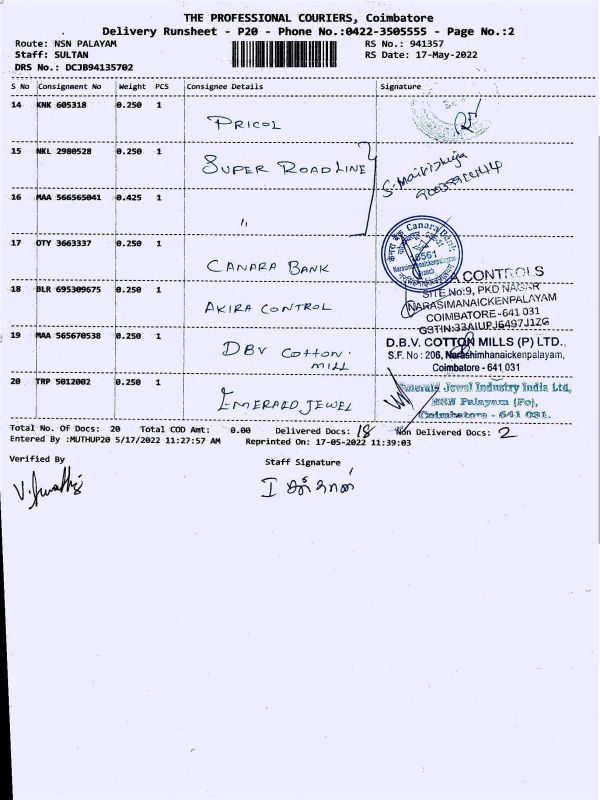 THE PROFESSIONAL COURIERS, Coimbatore
Delivery Runsheet - P20 - Phone No.:0422-3505555 - Page No.:2
Route: NSN PALAYAM RS No.: 941357
Staff: SULTAN RS Date: 17-May-2022
DRS No.: DCJB94135702
S No Consignment No Weight PCS Consignee Details Signature
14 KNK 605318 0.250 1
PRICOL
15 NKL 2980528 0.250 1
SUPER ROADLINE
16 MAA 566565041 0.425 1
"
17 OTY 3663337 0.250 1
CANARA BANK
Canara Bank
18 BLR 695309675 0.250 1
AKIRA CONTROL
A CONTROLS
SITE No:9, PKD NAGAR
NARASIMANAICKENPALAYAM
COIMBATORE-641 031
GSTIN:33AIUPJ6497J1ZG
19 MAA 565670538 0.250 1
DBV COTTON.
MILL
D.B.V. COTTON MILLS (P) LTD.,
S.F. No : 206, Narashimhanaickenpalayam,
Coimbatore - 641 031
20 TRP 5012002 0.250 1
EMERALD JEWEL
Emerald Jewel Industry India Ltd,
NSN Palayam (Po),
Coimbatore - 641 031.
Total No. Of Docs: 20 Total COD Amt: 0.00 Delivered Docs: 18 Non Delivered Docs: 2
Entered By :MUTHUP20 5/17/2022 11:27:57 AM Reprinted On: 17-05-2022 11:39:03
Verified By Staff Signature